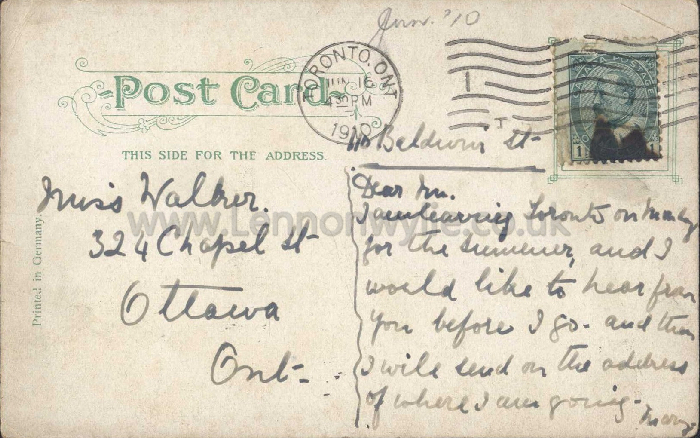 Jun. '10
TORONTO, ONT
JUN 16
PM
1910
Post Card
THIS SIDE FOR THE ADDRESS.
Baldwin St
Miss Walker.
324 Chapel St
Ottawa
Ont-
Dear
I am leaving Toronto on
for the summer, and I
would like to hear from
you before I go- and then
I will send on the address
of where I am going-
Printed in Germany.
www.Lennonwylie.co.uk
1